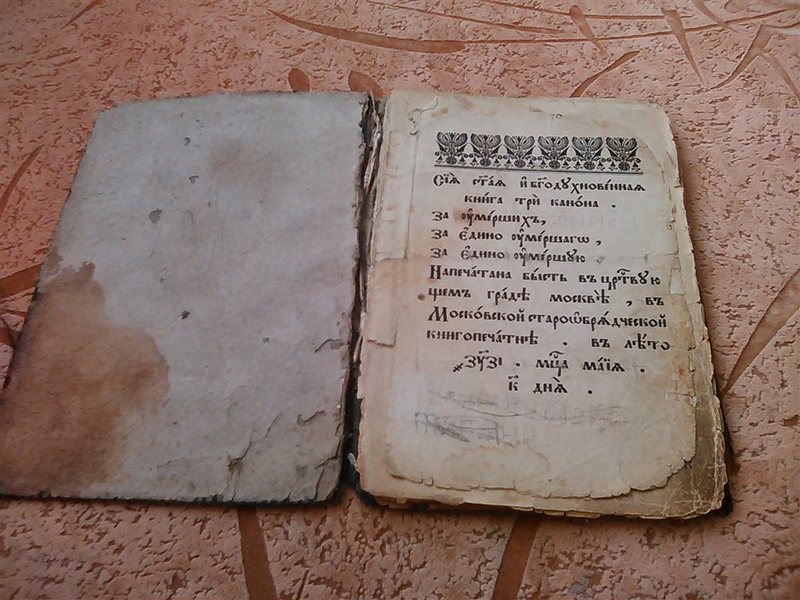 Сїѧ҄ ст҃а́ѧ и҆ бг҃одꙋхнове́ннаѧ
кни́га трѝ кано́на .
за ᲂу҆ме́ршихъ ,
за є҆ди́но ᲂу҆ме́ршагѡ ,
за є҆ди́но ᲂу҆ме́ршꙋю .
Напеча́тана бы́сть въ црⷭ҇твꙋю
щемъ гра́дѣ москвѣ̀ , въ
Моско́вской староѡбрѧ́дческой
книгопеча́тнѣ . въ лѣ́то
҂зꙋ҃зі . мцⷭ҇а ма́їѧ .
к҃ днѧ̀ .